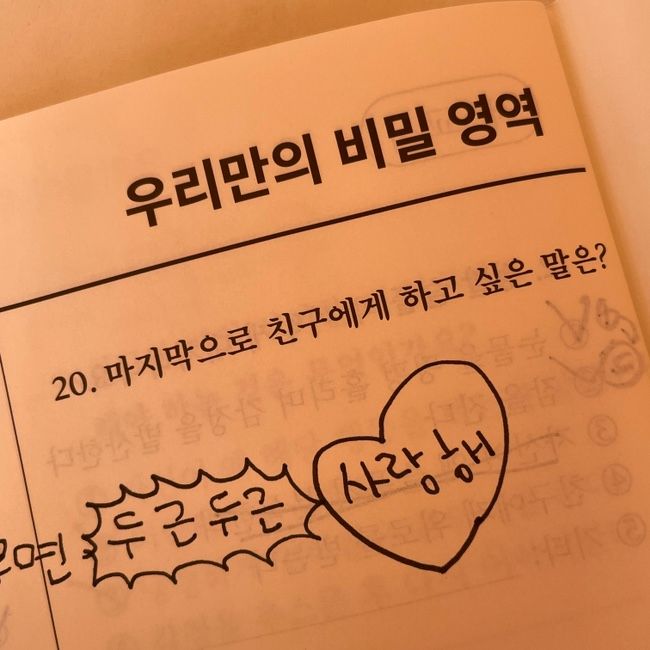 우리만의 비밀 영역
20. 마지막으로 친구에게 하고 싶은 말은?
사랑해
두근두근